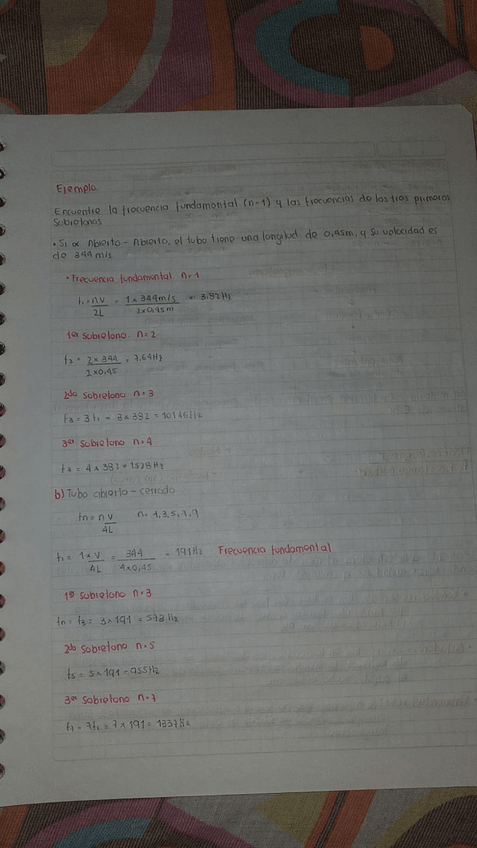 Ejemplo
Encuentre la frecuencia fundamental (n=1) y las frecuencias de los tres primeros
Sobretonos
• Si es Abierto - Abierto, el tubo tiene una longitud de 0,45m, y su velocidad es
de 344 m/s
• Frecuencia fundamental n=1
f₁ = nV/2L = 1x344m/s / 2x0,45m = 3,82Hz
1er Sobretono n=2
f₂ = 2x344 / 2x0,45 = 7,64Hz
2do Sobretono n=3
f₃ = 3f₁ = 3x382 = 10146Hz
3er Sobretono n=4
f₄ = 4x382 = 1528Hz
b) Tubo abierto - cerrado
fn = nV/4L n= 1,3,5,7,9
f₁ = 1xV/4L = 344 / 4x0,45 = 191Hz Frecuencia fundamental
1er Sobretono n=3
fn = f₃ = 3x191 = 573Hz
2do Sobretono n=5
f₅ = 5x191 = 955Hz
3er Sobretono n=7
f₇ = 7f₁ = 7x191 = 1337Hz